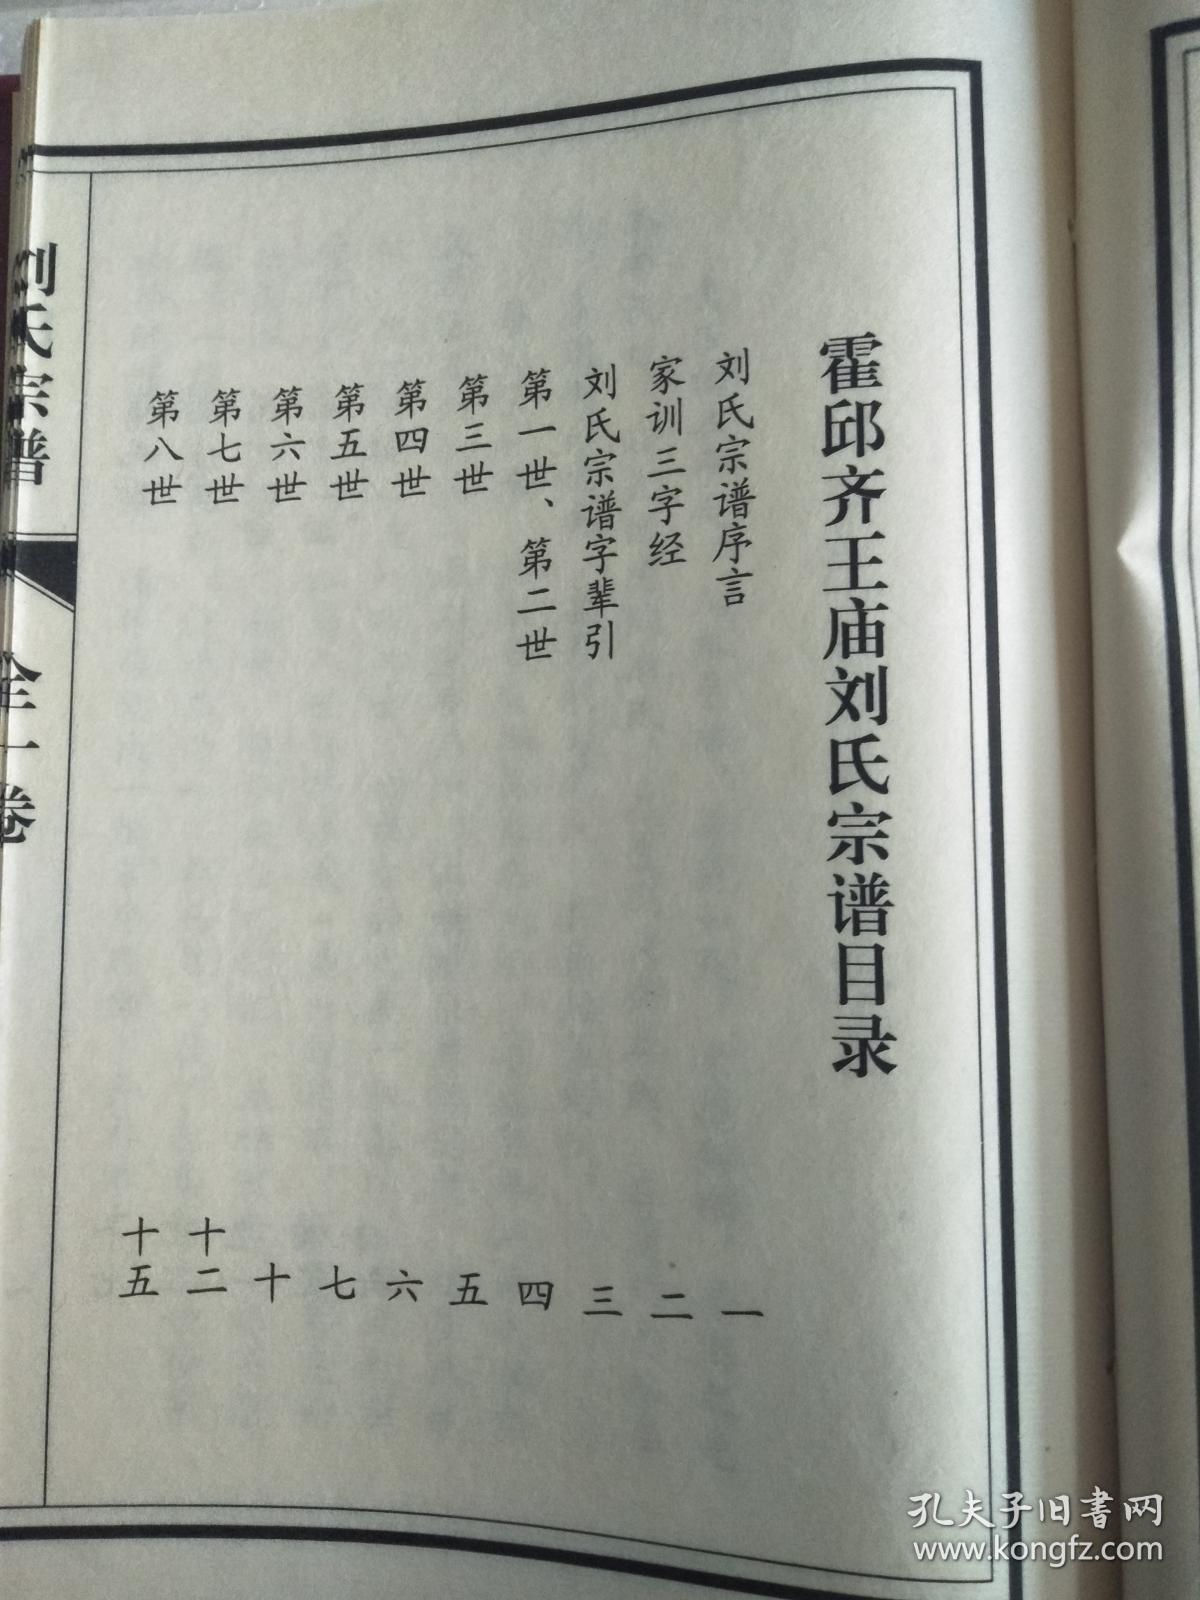 霍邱齐王庙刘氏宗谱目录
刘氏宗谱序言 一
家训三字经 二
刘氏宗谱字辈引 三
第一世、第二世 四
第三世 五
第四世 六
第五世 七
第六世 十
第七世 十二
第八世 十五
刘氏宗谱 全一卷
孔夫子旧书网
www.kongfz.com